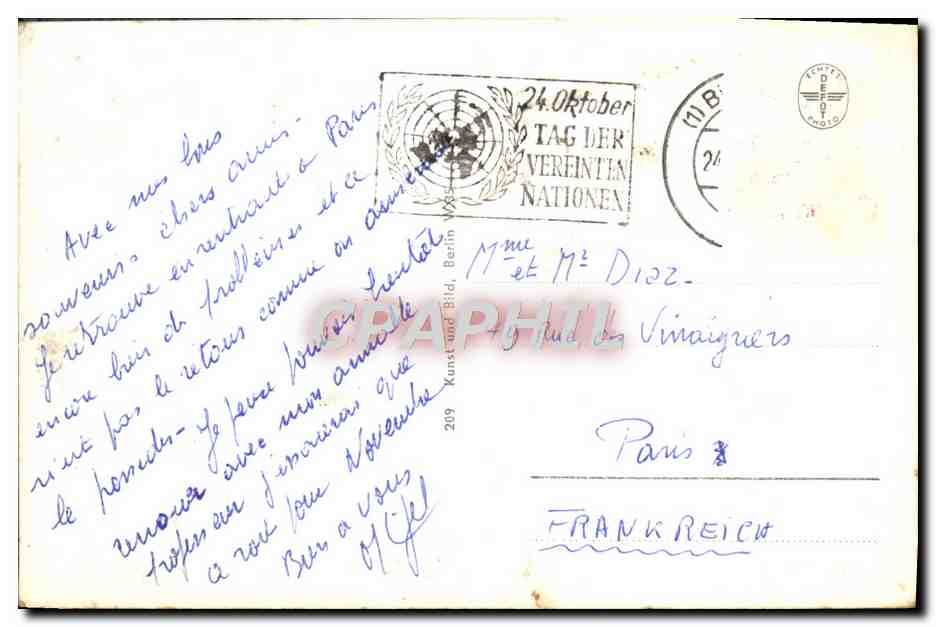 Avec nos bons
souvenirs chers amis.
Je retrouve en rentrant à Paris
encore bien de problèmes et ce
n'est pas le retour comme on aimerait
le posseder - Je pense pouvoir bientôt
avec mon aimable
professeur j'essaierai que
à pour Novembre
Bien à vous
24. Oktober
TAG DER
VEREINTEN
NATIONEN
(1) B
24
ECHTES
DEFOT
PHOTO
209 Kunst und Bild, Berlin W
Mme
et Mr Diaz.
49 Rue des Vinaigriers
Paris
FRANKREICH
CPAPHIL